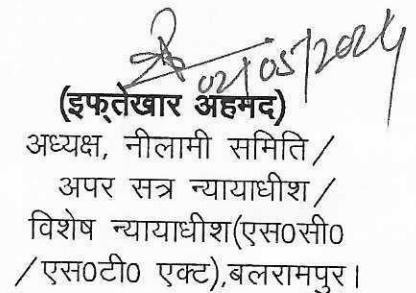 02/05/2024
(इफ्तेखार अहमद)
अध्यक्ष, नीलामी समिति /
अपर सत्र न्यायाधीश /
विशेष न्यायाधीश(एस0सी0
/एस0टी0 एक्ट),बलरामपुर।